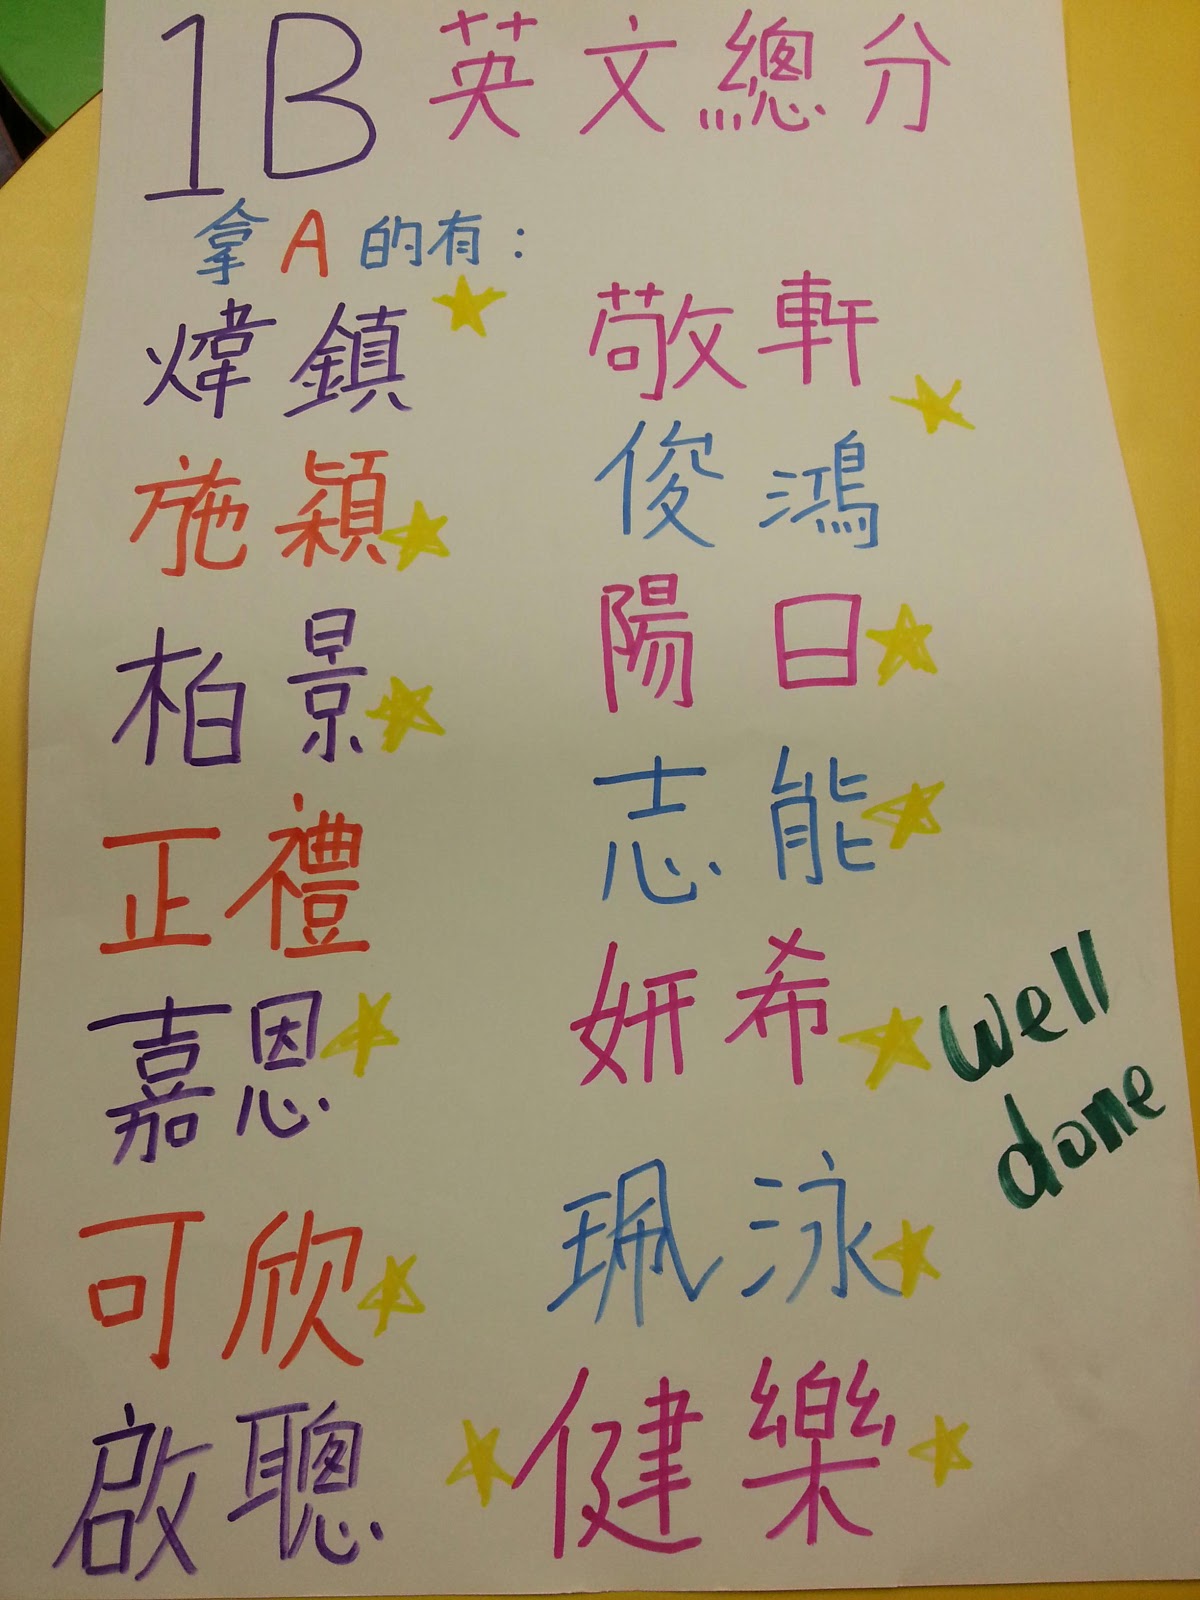 1B 英文總分
拿A的有：
煒鎮 敬軒
施穎 俊鴻
柏景 陽日
正禮 志能
嘉恩 妍希
well
done
可欣 珮泳
啟聰 健樂